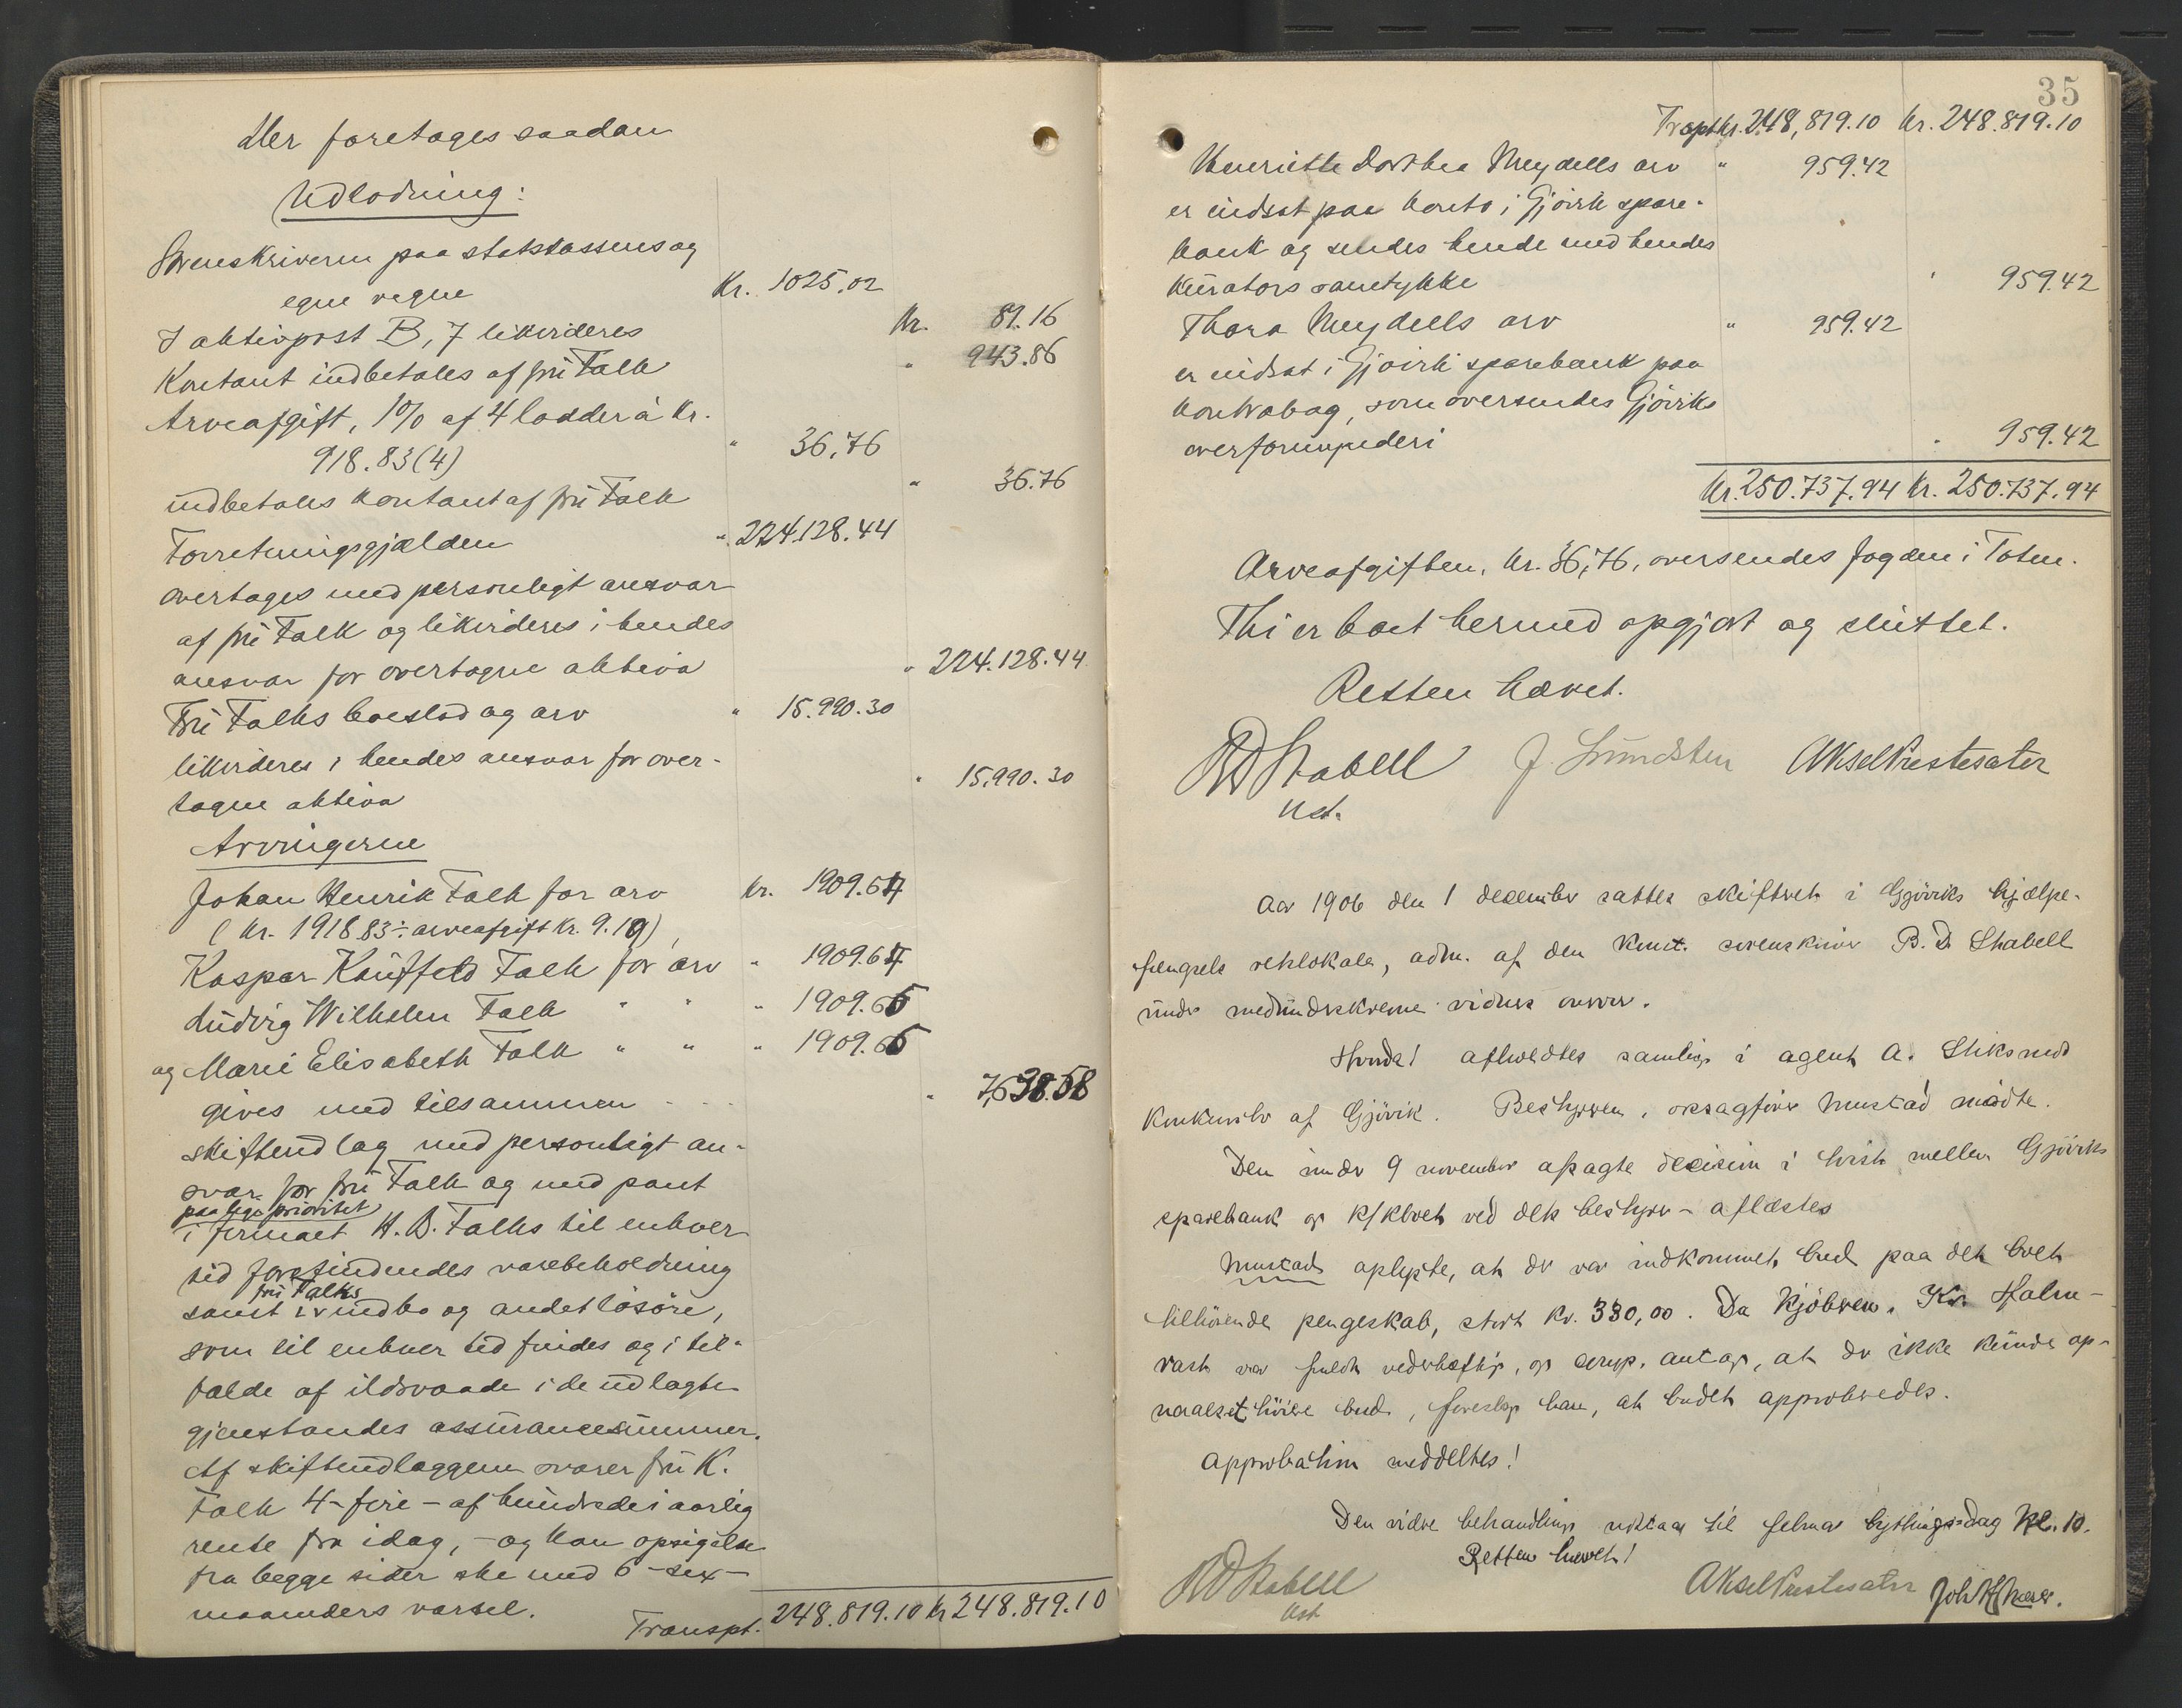 Her foretages saadan
Udlodning:
Sorenskriveren paa statskassens og
egne vegne Kr. 1025.02
I aktivpost B, 7 likvideres Kr. 81.16
Kontant indbetales af fru Falk " 943.86
Arveafgift, 1% af 4 lodder à Kr.
918.83 (4) " 36,76
indbetales kontant af fru Falk " 36.76
Forretningsgjælden " 224.128.44
overtages med personligt ansvar
af fru Falk og likvideres i hendes
ansvar for overtagne aktiva " 224.128.44
Fru Falks boeslod og arv " 15.990.30
likvideres i hendes ansvar for over-
tagne aktiva " 15.990.30
Arvingerne
Johan Henrik Falk for arv Kr. 1909.64
(Kr. 1918.83 ÷ arveafgift Kr. 9.19),
Kaspar Kauffeld Falk for arv " 1909.64
Ludvig Wilhelm Falk " " " 1909.65
og Marie Elisabeth Falk " " " 1909.65
gives med tilsammen - - - " 7,638.58
skifteudlæg med personligt an-
svar for fru Falk og med pant
paa lige prioritet
i firmaet H. B. Falks til enhver
tid forefindendes varebeholdning
fru Falks
samt i indbo og andet løsøre,
som til enhver tid findes og i til-
fælde af ildsvaade i de udlagte
gjenstandes assurancesummer.
Af skifteudlæggene svarer fru K.
Falk 4 - fire - af hundrede i aarlig
rente fra idag, - og kan opsigelse
fra begge sider ske med 6 - sex -
maaneders varsel.
Transpt. 248.819.10 Kr 248.819.10
35
Trspt Kr. 248,819.10 Kr. 248.819.10
Henriette Dorthea Meydells arv " 959.42
er indsat paa konto i Gjøvik spare-
bank og sendes hende med hendes
kurators samtykke " 959.42
Thora Meydells arv " 959.42
er indsat i Gjøvik sparebank paa
kontrabog, som oversendes Gjøviks
overformynderi " 959.42
Kr. 250.737.94 Kr. 250.737.94
Arveafgiften, Kr. 36,76, oversendes fogden i Toten.
Thi er boet hermed opgjort og sluttet.
Retten hævet.
BD Stabell J. Lundsten Aksel Prestesæter
Kst.
Aar 1906 den 1 december sattes skifteret i Gjøviks hjælpe-
fengsels retslokale, adm. af den konst. sorenskriver B. D. Stabell
under medunderskrevne vidners ansvar.
Hvorda! afholdtes samling i agent A. 
konkursbo af Gjøvik. Bestyreren, o.r.sagfører Mustad mødte.
Den under 9 november afsagte decision i tvist mellem Gjøviks
sparebank og k/kboet ved dets bestyrer - aflæstes
Mustad oplyste, at der var indkommet bud paa det boet
tilhørende pengeskab, stort kr. 330,00. Da kjøberen, Kr. Halm-
rast var fuldt vederhæftig, og comp. antog, at der ikke kunde op-
naaes et høiere bud, foreslog han, at budet approberedes.
Approbation meddeltes!
Den videre behandling udstaar til februar bythings-dag Kl. 10.
Retten hævet!
BD Stabell Aksel Prestesæter
Kst